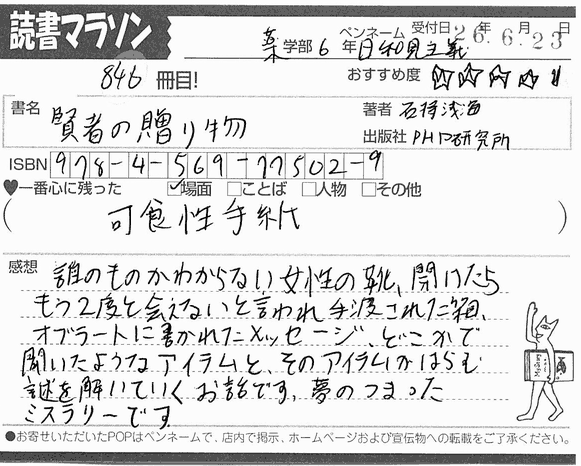 読書マラソン
薬学部6年 ペンネーム 日和見主義 受付日 26年6月23日
846冊目! おすすめ度 ☆☆☆☆
書名 賢者の贈り物 著者 石持浅海
出版社 PHP研究所
ISBN 978-4-569-77502-9
♥一番心に残った ☑場面 □ことば □人物 □その他
( 可食性手紙 )
感想 誰のものかわからない女性の靴、開けたら
もう2度と会えないと言われ手渡された箱、
オブラートに書かれたメッセージ、どこかで
聞いたようなアイテムと、そのアイテムがはらむ
謎を解いていくお話です。夢のつまった
ミステリーです
●お寄せいただいたPOPはペンネームで、店内で掲示、ホームページおよび宣伝物への転載をご了承ください。